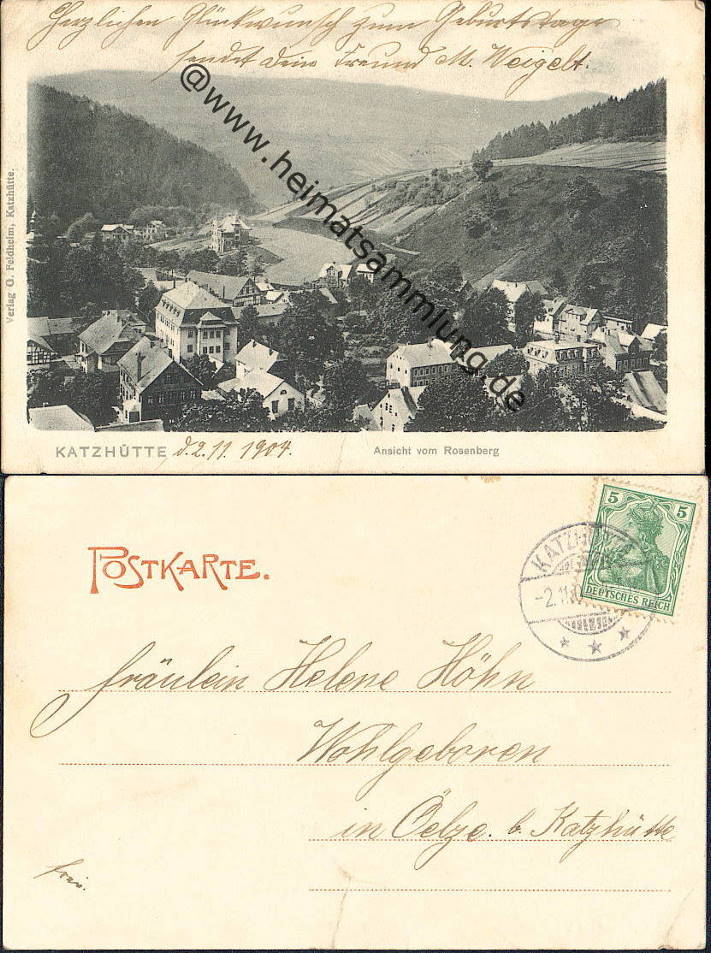 Herzlichen Glückwunsch zum Geburtstage
sendet Dein Freund M. Weigelt.
@www.heimatsammlung.de
Verlag G. Feldheim, Katzhütte.
KATZHÜTTE d. 2. 11. 1904.
Ansicht vom Rosenberg
POSTKARTE.
5 5
DEUTSCHES REICH
KATZHÜTTE
-2.11.0
Fräulein Helene Höhn
Wohlgeboren
in Oelze. b. Katzhütte
frei.